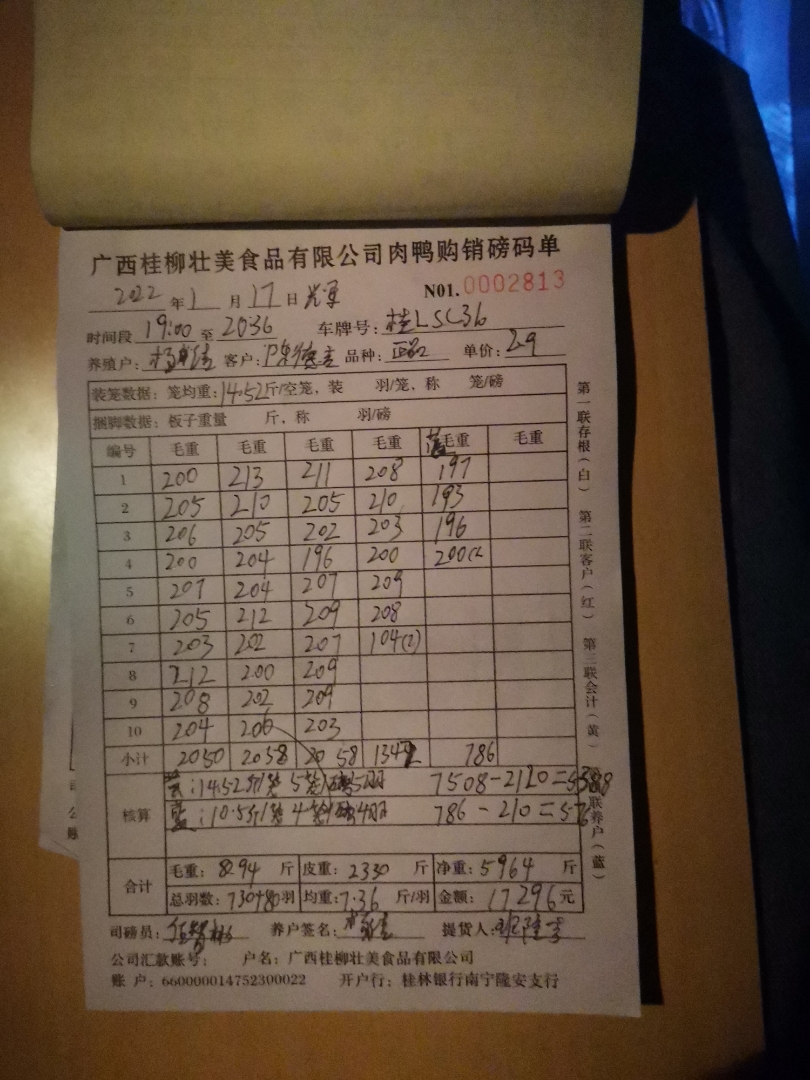 广西桂柳壮美食品有限公司肉鸭购销磅码单
2022 年 1 月 17 日 N01.0002813
时间段 19:00 至 20:36 车牌号: 桂LSC36
养殖户: 客户: 陈德 品种: 正品 单价: 2.9
装笼数据: 笼均重: 14.52斤/空笼, 装 羽/笼, 称 笼/磅
捆脚数据: 板子重量 斤, 称 羽/磅
编号 毛重 毛重 毛重 毛重 蓝毛重 毛重
1 200 213 211 208 197
2 205 210 205 210 193
3 206 205 202 203 196
4 200 204 196 200 200(2
5 207 204 207 209
6 205 212 209 208
7 203 202 207 104(2)
8 212 200 209
9 208 202 209
10 204 206 203
小计 2050 2058 2058 1342 786
核算
:14.52斤/笼 5笼/磅 5羽 7508-2120=5388
蓝:10.5斤/笼 4笼/磅 4羽 786-210=576
合计
毛重: 8294 斤 皮重: 2330 斤 净重: 5964 斤
总羽数: 730+80羽 均重: 7.36 斤/羽 金额: 17296元
司磅员: 养户签名: 提货人:
公司汇款账号: 户名: 广西桂柳壮美食品有限公司
账 户: 660000014752300022 开户行: 桂林银行南宁隆安支行
第一联存根(白) 第二联客户(红) 第三联会计(黄) 联养户(蓝)